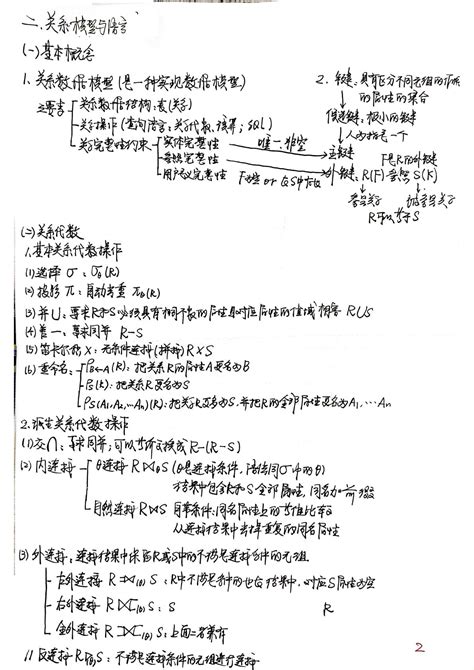 二、关系模型与语言
(一)基本概念
1. 关系数据模型(是一种实现数据模型)
三要素
关系数据结构:表(关系)
关系操作(查询语言:关系代数、演算;SQL)
关系完整性约束
实体完整性 唯一非空
参照完整性
用户定义完整性 F为空 or 在S中存在
2. 键: 具有区分不同元组的作用
的属性的集合
候选键: 极小的键
人为指定一个
主键
F是R的外键
外键: R(F)参照S(K)
参照关系 被参照关系
R可以等于S
(二)关系代数
1.基本关系代数操作
(1)选择 σ: σθ(R)
(2)投影 π: 自动去重 π(R)
(3)并∪: 要求R和S必须具有相同个数的属性且对应属性的值域相容 R∪S
(4)差 一: 要求同并 R-S
(5)笛卡尔积 ×: 无条件连接(拼接) R×S
(6)重命名:
ρB←A(R): 把关系R的属性A更名为B
ρS(R): 把关系R更名为S
ρS(A1,A2,…An)(R): 把关系R更名为S,并把R的全部属性更名为A1,…An
2.派生关系代数操作
(1)交∩: 要求同并;可以等价变换成R-(R-S)
(2)内连接
θ连接 R⋈θS (θ是连接条件,语法同σ中的θ)
结果中包含R和S全部属性,同名加前缀
自然连接 R⋈S 等条件:同名属性上的等值比较
从连接结果中去掉重复的同名属性
(3)外连接: 连接结果中保留R或S中的不满足连接条件的元组
左外连接 R⟕(θ)S: R中不满足条件的也在结果中,对应S属性为空
右外连接 R⟖(θ)S: S R
全外连接 R⟗(θ)S: 上面二者兼有
反连接 R▷θS: 不满足连接条件的元组进行连接
2